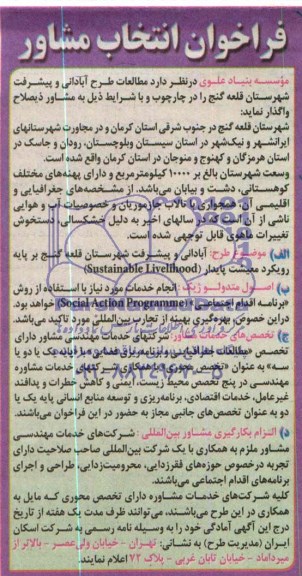 فراخوان انتخاب مشاور
مؤسسه بنیاد علوی درنظر دارد مطالعات طرح آبادانی و پیشرفت
شهرستان قلعه گنج را در چارچوب و با شرایط ذیل به مشاور ذیصلاح
واگذار نماید:
شهرستان قلعه گنج در جنوب شرقی استان کرمان و در مجاورت شهرستانهای
ایرانشهر و نیک‌شهر در استان سیستان وبلوچستان، رودان و جاسک در
استان هرمزگان و کهنوج و منوجان در استان کرمان واقع شده است.
وسعت شهرستان بالغ بر ۱۰۰۰۰ کیلومترمربع و دارای پهنه‌های مختلف
کوهستانی، دشت و بیابان می‌باشد. از مشخصه‌های جغرافیایی و
اقلیمی آن همجواری با تالاب جازموریان و خصوصیات آب و هوایی
ناشی از آن است که در سالهای اخیر به دلیل خشکسالی، دستخوش
تغییرات ماهوی قابل توجهی شده است.
الف) موضوع طرح: آبادانی و پیشرفت شهرستان قلعه گنج بر پایه
رویکرد معیشت پایدار (Sustainable Livelihood)
ب) اصول متدولوژیک: انجام خدمات مورد نیاز با استفاده از روش
«برنامه اقدام اجتماعی» (Social Action Programme) خواهد بود.
دراین خصوص بهره‌گیری بهینه از تجارب بین‌المللی مورد تاکید می‌باشد.
ج) تخصص‌های خدمات مشاور: شرکتهای خدمات مهندسی مشاور دارای
تخصص «مطالعات جغرافیایی و برنامه‌ریزی فضایی» با پایه یک یا دو یا
سه» به عنوان «تخصص محوری» با همکاری شرکتهای خدمات مشاوره
مهندسی در پنج تخصص محیط زیست، ایمنی و کاهش خطرات و پدافند
غیرعامل، خدمات اقتصادی، برنامه‌ریزی و توسعه منابع انسانی پایه یک یا
دو به عنوان تخصص‌های جانبی مجاز به حضور در این فراخوان می‌باشند.
د) التزام بکارگیری مشاور بین‌المللی: شرکت‌های خدمات مهندسی
مشاور ملزم به همکاری با یک شرکت بین‌المللی صاحب صلاحیت دارای
تجربه درخصوص حوزه‌های فقرزدایی، محرومیت‌زدایی، طراحی و اجرای
برنامه‌های اقدام اجتماعی می‌باشند.
کلیه شرکت‌های خدمات مشاوره دارای تخصص محوری که مایل به
همکاری در این طرح می‌باشند، می‌توانند ظرف مدت یک هفته از تاریخ
درج این آگهی آمادگی خود را به وسیله نامه رسمی به شرکت اسکان
ایران (مدیریت طرح) به نشانی: تهران - خیابان ولی‌عصر - بالاتر از
میرداماد - خیابان تابان غربی - پلاک ۷۲ اعلام نمایند.